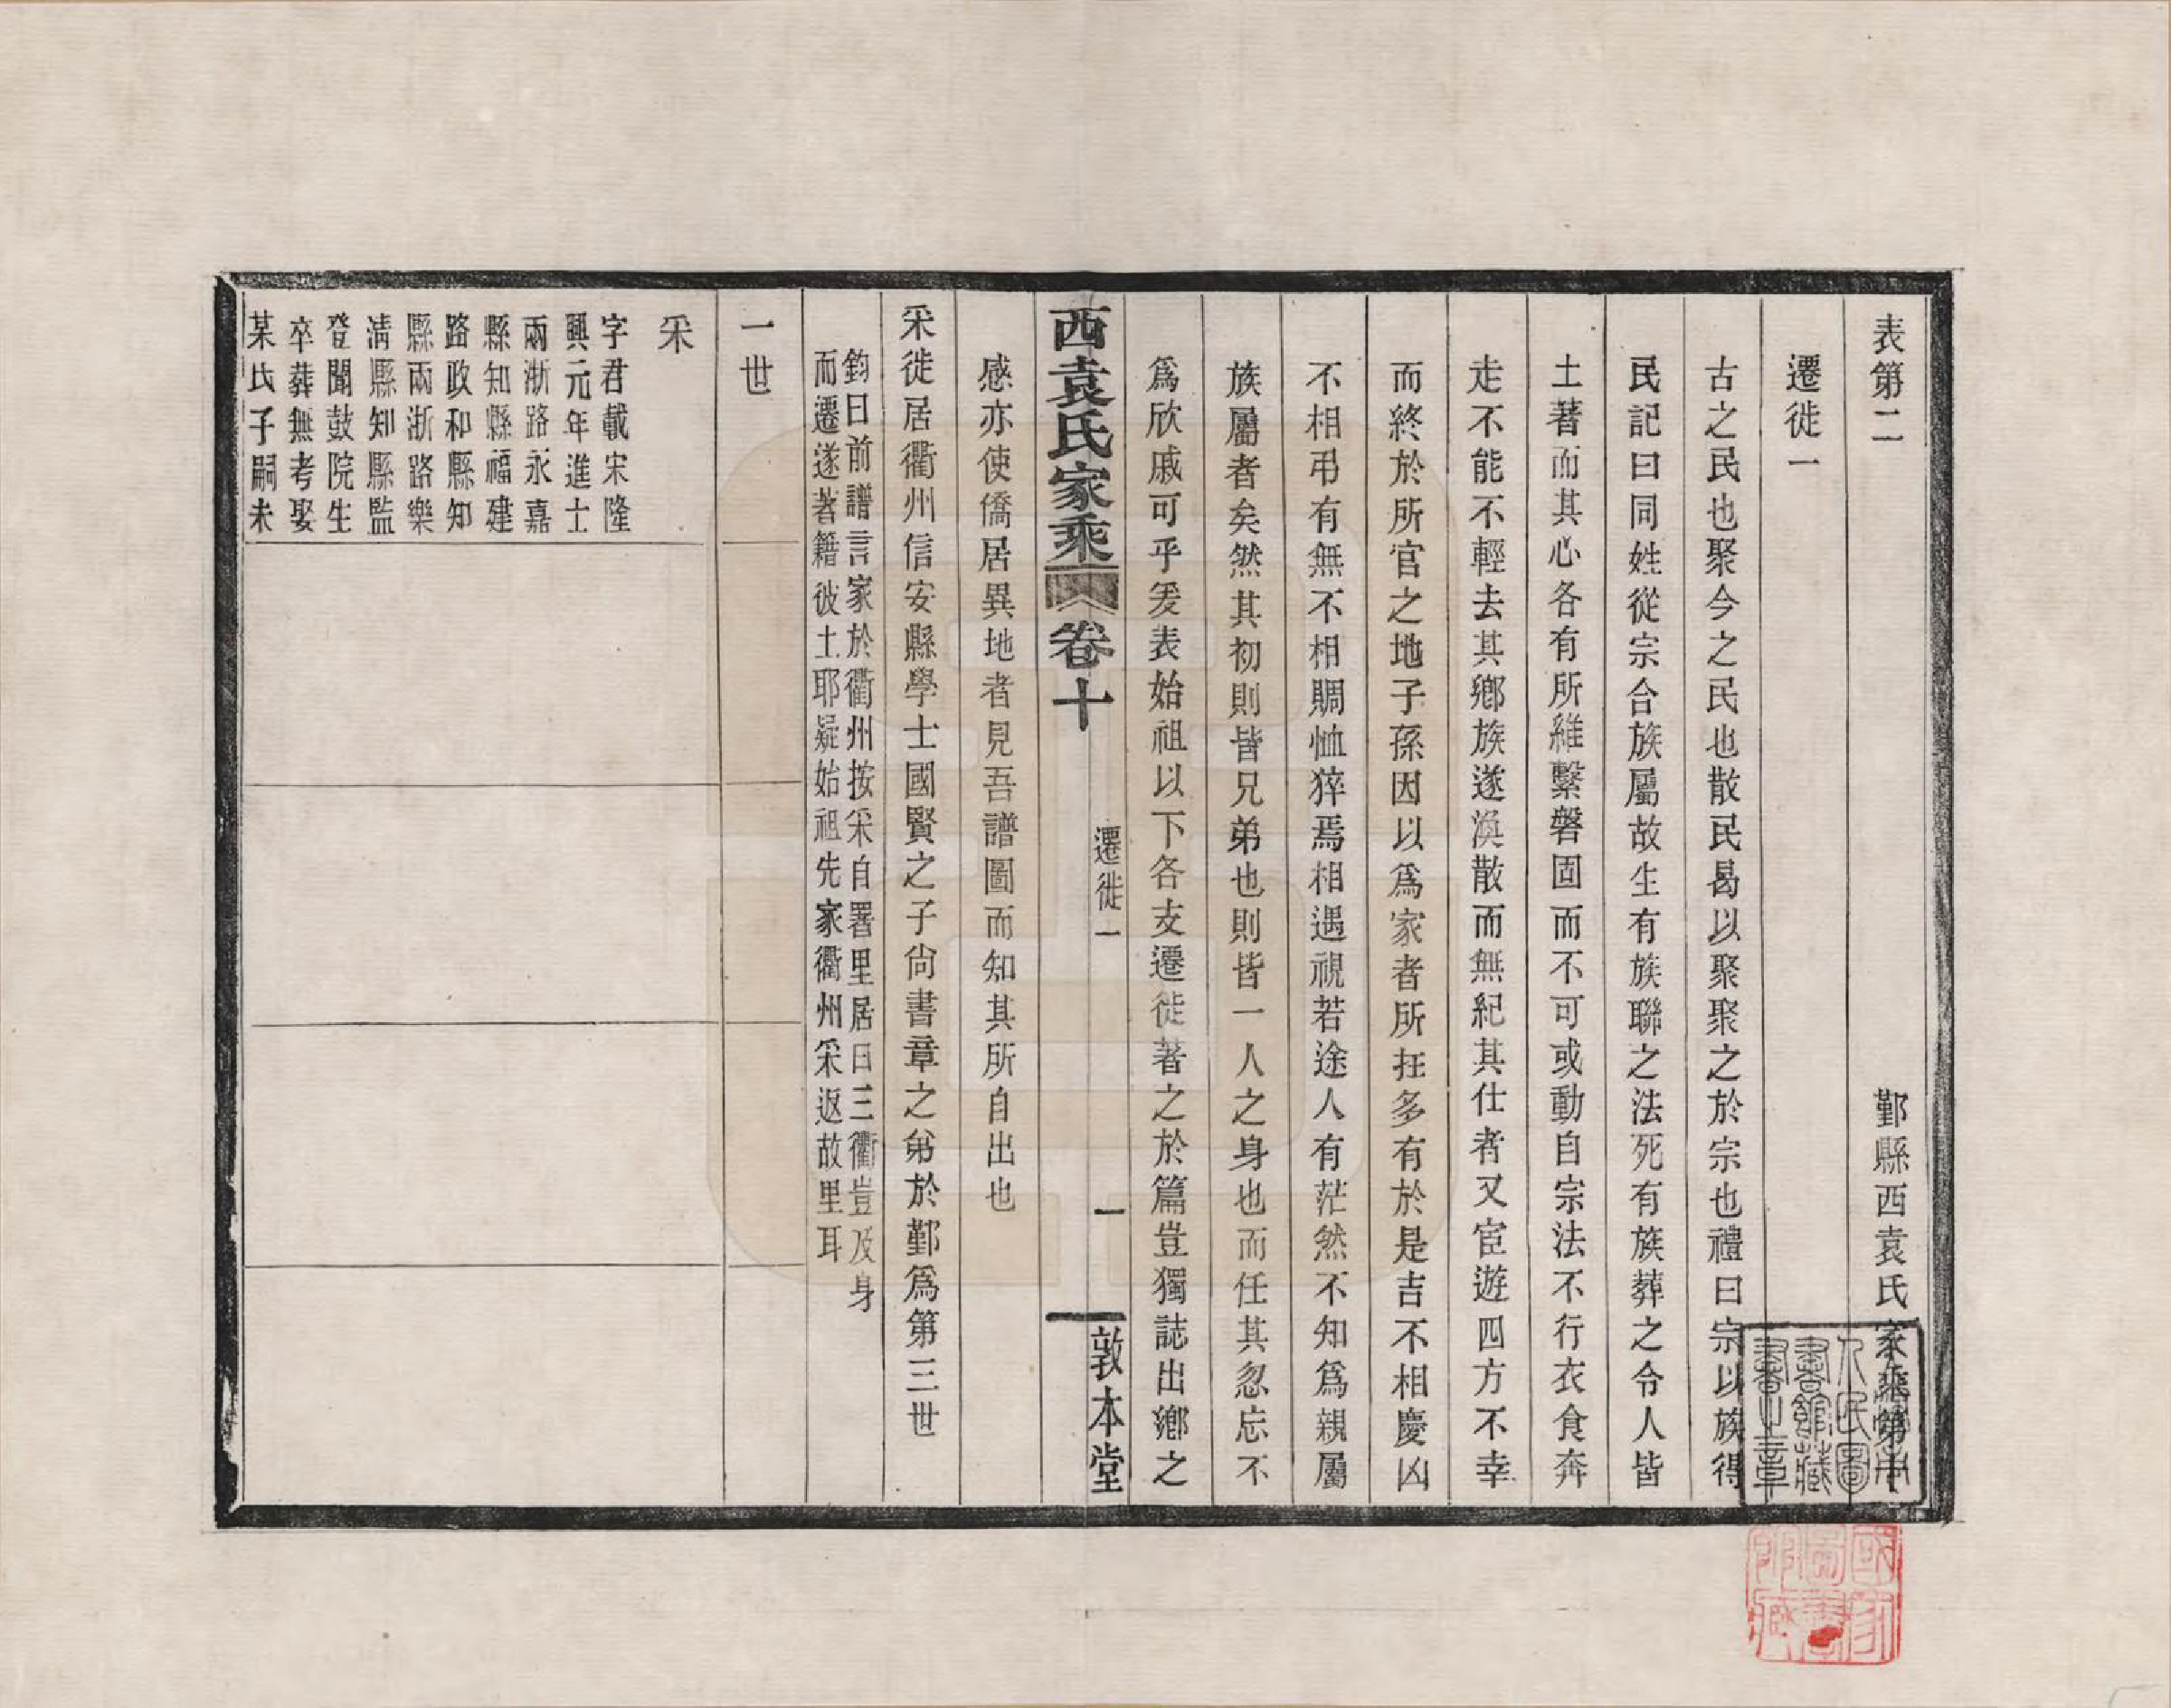 表第二　鄞縣西袁氏家乘第十
遷徙一
古之民也聚今之民也散民曷以聚聚之於宗也禮曰宗以族得
民記曰同姓從宗合族屬故生有族聯之法死有族葬之令人皆
土著而其心各有所維繫磐固而不可或動自宗法不行衣食奔
走不能不輕去其鄉族遂渙散而無紀其仕者又宦遊四方不幸
而終於所官之地子孫因以爲家者所在多有於是吉不相慶凶
不相弔有無不相賙恤猝焉相遇視若途人有茫然不知爲親屬
族屬者矣然其初則皆兄弟也則皆一人之身也而任其忽忘不
爲欣戚可乎爰表始祖以下各支遷徙著之於篇豈獨誌出鄉之
西袁氏家乘　卷十　遷徙一　一　敦本堂
感亦使僑居異地者見吾譜圖而知其所自出也
采徙居衢州信安縣學士國賢之子尚書章之弟於鄞爲第三世
鈞曰前譜言家於衢州按采自署里居曰三衢豈及身
而遷遂著籍彼土耶疑始祖先家衢州采返故里耳
一世
采
字君載宋隆
興元年進士
兩浙路永嘉
縣知縣福建
路政和縣知
縣兩浙路樂
清縣知縣監
登聞鼓院生
卒葬無考娶
某氏子嗣未
人民圖
書館藏
書之章
國家
圖書
館藏